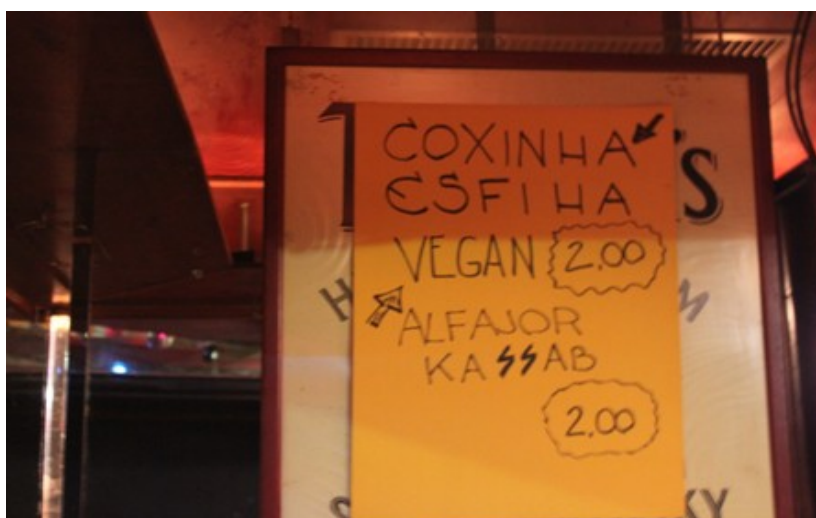 COXINHA
ESFIHA
VEGAN 2,00
ALFAJOR
KASSAB
2,00